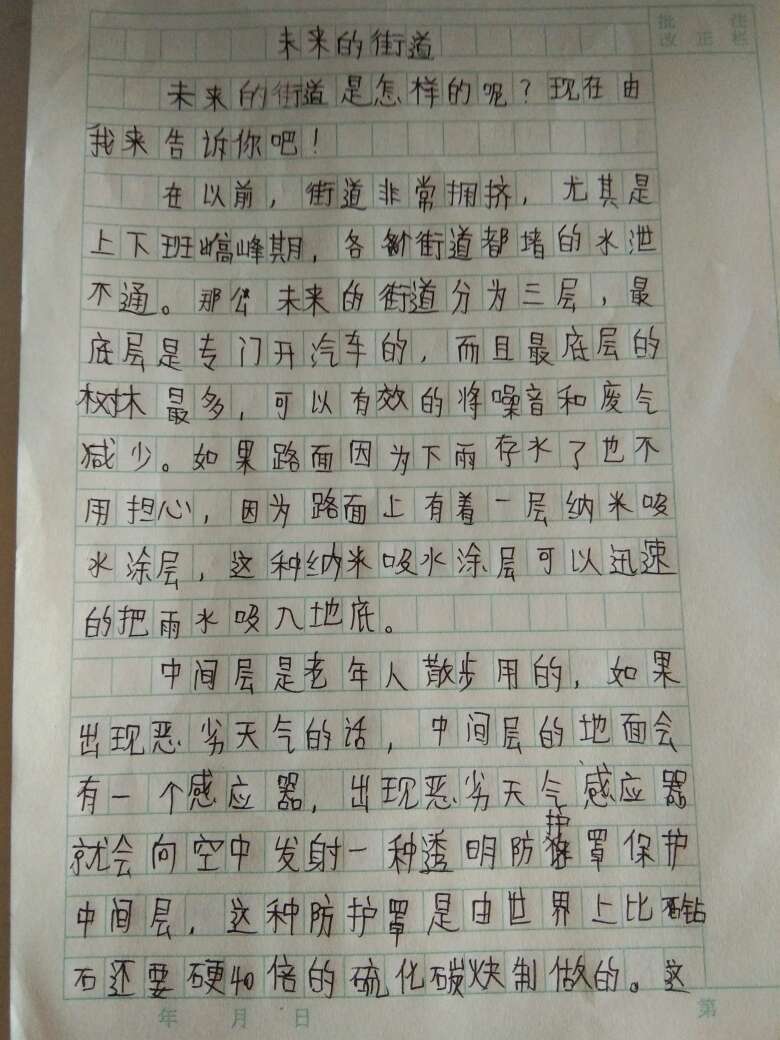 批 注
改 正 栏
未来的街道
未来的街道是怎样的呢？现在由
我来告诉你吧！
在以前，街道非常拥挤，尤其是
上下班高峰期，各个街道都堵的水泄
不通。那么未来的街道分为三层，最
底层是专门开汽车的，而且最底层的
树木最多，可以有效的将噪音和废气
减少。如果路面因为下雨存水了也不
用担心，因为路面上有着一层纳米吸
水涂层，这种纳米吸水涂层可以迅速
的把雨水吸入地底。
中间层是老年人散步用的，如果
出现恶劣天气的话，中间层的地面会
有一个感应器，出现恶劣天气感应器
就会向空中发射一种透明防护罩保护
中间层，这种防护罩是由世界上比钻
石还要硬40倍的硫化碳炔制做的。这
年 月 日 第